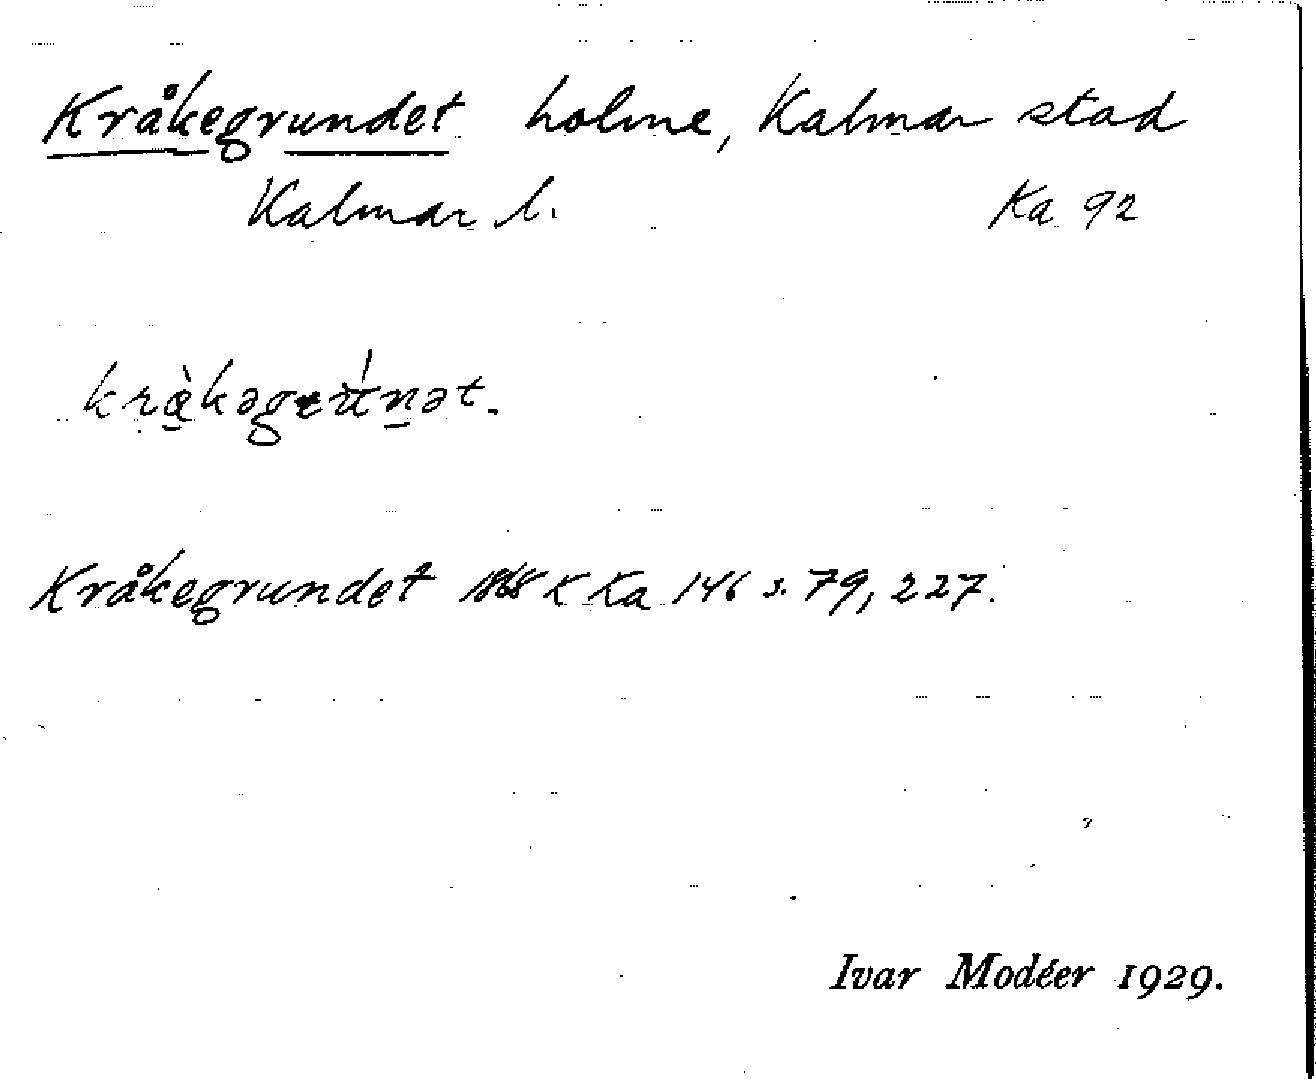 Kråkegrundet holme, Kalmar stad
Kalmar l. Ka 92
Kråkegrundet 1868 K Ka 146 s. 79, 227.
Ivar Modéer 1929.